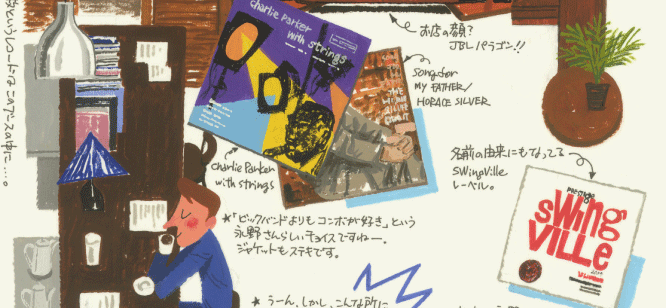 お店の顔?
JBL パラゴン!!
Song for
MY FATHER/
HORACE SILVER
charlie Parker
with strings
charlie Parker
with strings
名前の由来にもなってる
SWingVille
レーベル。
sWing
VILLE
★「ビッグバンドよりもコンボが好き」という
永野さんらしいチョイスですねー。
ジャケットもステキです。
★ うーん、しかし、こんな所に